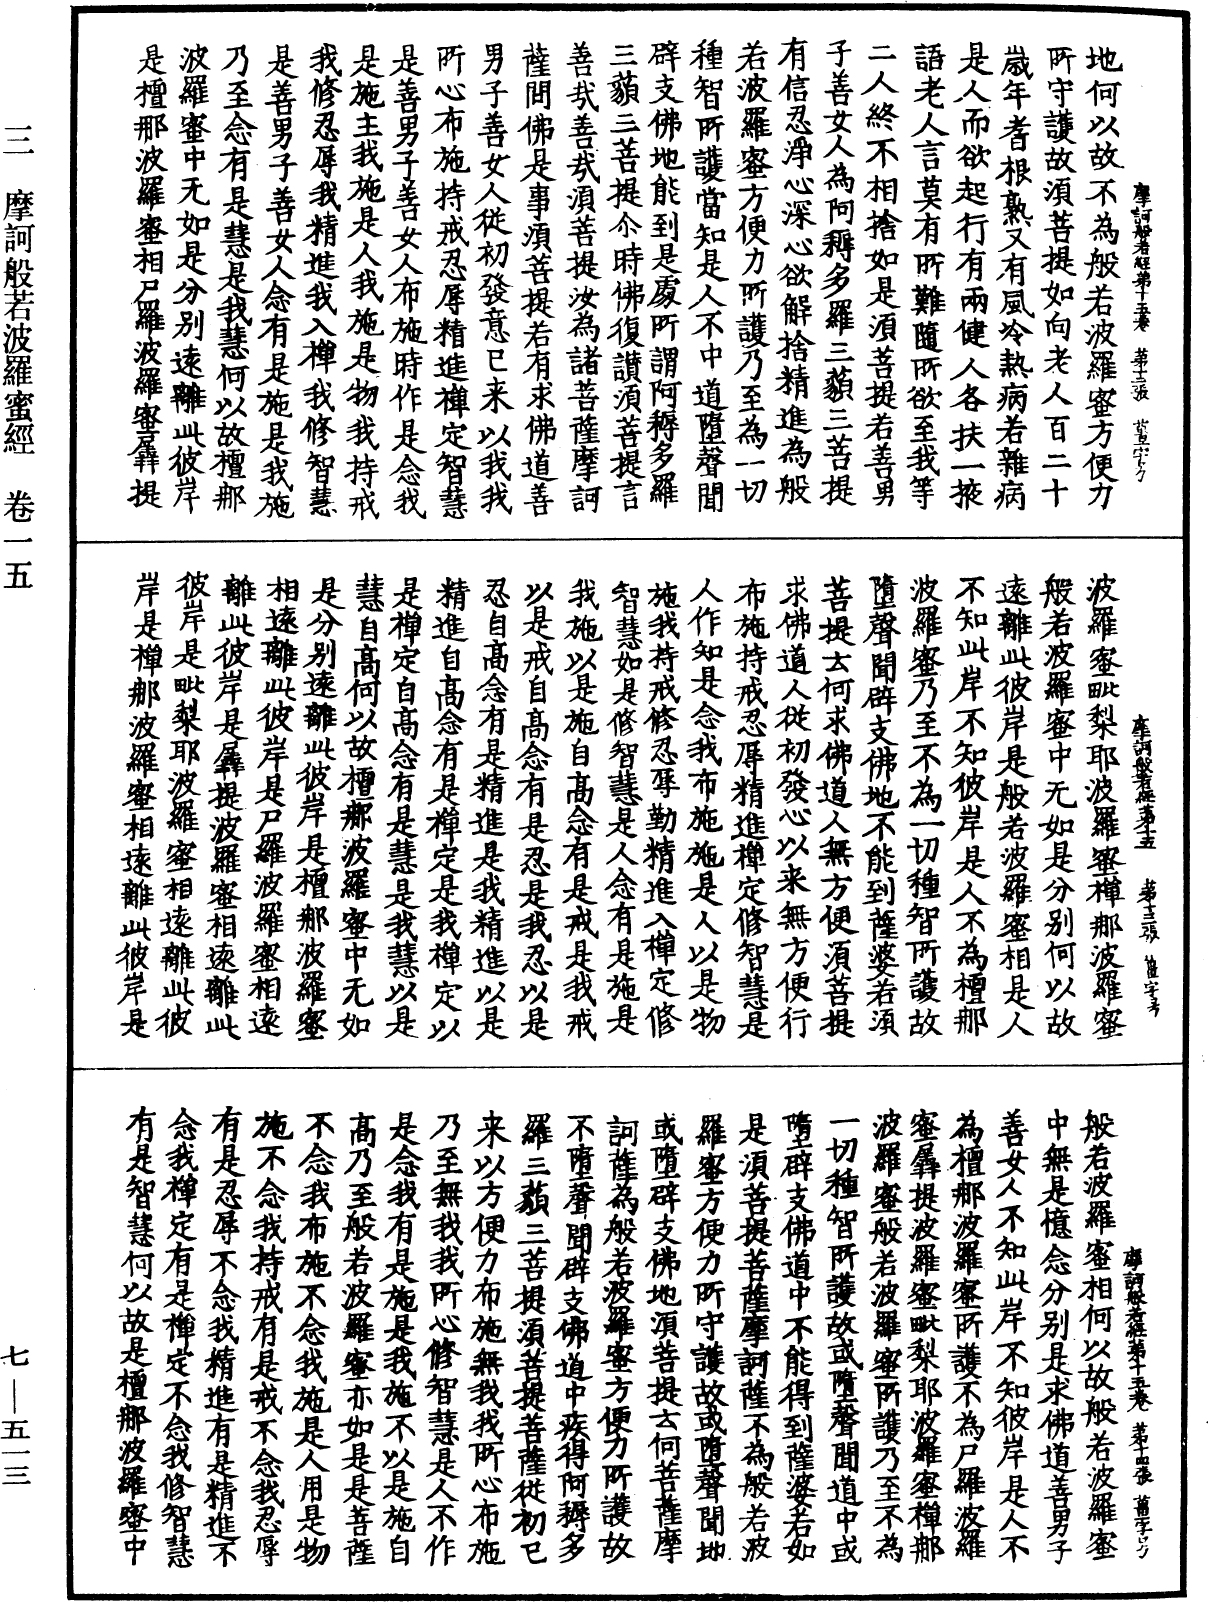 三　摩訶般若波羅蜜經　卷一五
七—五一三
摩訶般若經第十五卷　第十二張
地何以故不為般若波羅蜜方便力
所守護故須菩提如向老人百二十
歲年耆根熟又有風冷熱病若雜病
是人而欲起行有兩健人各扶一掖
語老人言莫有所難隨所欲至我等
二人終不相捨如是須菩提若善男
子善女人為阿耨多羅三藐三菩提
有信忍淨心深心欲解捨精進為般
若波羅蜜方便力所護乃至為一切
種智所護當知是人不中道墮聲聞
辟支佛地能到是處所謂阿耨多羅
三藐三菩提尒時佛復讚須菩提言
善哉善哉須菩提汝為諸菩薩摩訶
薩問佛是事須菩提若有求佛道善
男子善女人從初發意已来以我我
所心布施持戒忍辱精進禪定智慧
是善男子善女人布施時作是念我
是施主我施是人我施是物我持戒
我修忍辱我精進我入禪我修智慧
是善男子善女人念有是施是我施
乃至念有是慧是我慧何以故檀那
波羅蜜中无如是分別遠離此彼岸
是檀那波羅蜜相尸羅波羅蜜羼提
摩訶般若經第十五　第十三張
波羅蜜毗梨耶波羅蜜禪那波羅蜜
般若波羅蜜中无如是分別何以故
遠離此彼岸是般若波羅蜜相是人
不知此岸不知彼岸是人不為檀那
波羅蜜乃至不為一切種智所護故
墮聲聞辟支佛地不能到薩婆若須
菩提云何求佛道人無方便須菩提
求佛道人從初發心以来無方便行
布施持戒忍辱精進禪定修智慧是
人作如是念我布施施是人以是物
施我持戒修忍辱勤精進入禪定修
智慧如是修智慧是人念有是施是
我施以是施自高念有是戒是我戒
以是戒自高念有是忍是我忍以是
忍自高念有是精進是我精進以是
精進自高念有是禪定是我禪定以
是禪定自高念有是慧是我慧以是
慧自高何以故檀那波羅蜜中无如
是分別遠離此彼岸是檀那波羅蜜
相遠離此彼岸是尸羅波羅蜜相遠
離此彼岸是羼提波羅蜜相遠離此
彼岸是毗梨耶波羅蜜相遠離此彼
岸是禪那波羅蜜相遠離此彼岸是
摩訶般若經第十五卷　第十四張
般若波羅蜜相何以故般若波羅蜜
中無是憶念分別是求佛道善男子
善女人不知此岸不知彼岸是人不
為檀那波羅蜜所護不為尸羅波羅
蜜羼提波羅蜜毗梨耶波羅蜜禪那
波羅蜜般若波羅蜜所護乃至不為
一切種智所護故或墮聲聞道中或
墮辟支佛道中不能得到薩婆若如
是須菩提菩薩摩訶薩不為般若波
羅蜜方便力所守護故或墮聲聞地
或墮辟支佛地須菩提云何菩薩摩
訶薩為般若波羅蜜方便力所護故
不墮聲聞辟支佛道中疾得阿耨多
羅三藐三菩提須菩提菩薩從初已
来以方便力布施無我我所心布施
乃至無我我所心修智慧是人不作
是念我有是施是我施不以是施自
高乃至般若波羅蜜亦如是是菩薩
不念我布施不念我施是人用是物
施不念我持戒有是戒不念我忍辱
有是忍辱不念我精進有是精進不
念我禪定有是禪定不念我修智慧
有是智慧何以故是檀那波羅蜜中